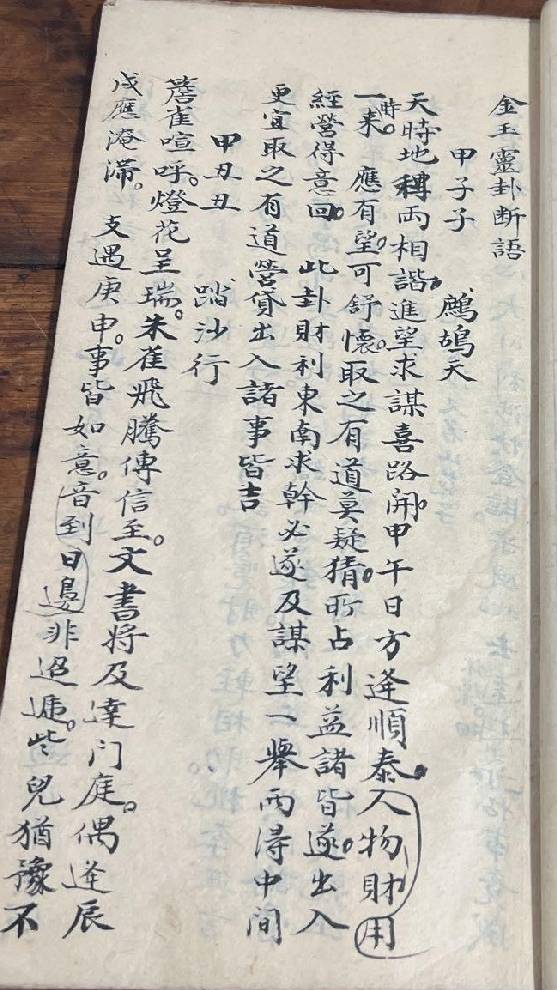 金玉靈卦断語
甲子子　鷓鴣天
天時地轉兩相諧。進望求謀喜路開。甲午日方逢順泰。人物財用
一時來。應有望。可舒懷。取之有道莫疑猜。所占利益諸皆遂。出入
經營得意回。此卦財利東南求幹必遂及謀望一舉兩得中間
更宜取之有道營貸出入諸事皆吉
甲丑丑　踏沙行
簷雀喧呼。燈花呈瑞。朱雀飛騰傳信至。文書將及達门庭。偶逢辰
戌應淹滞。支遇庚申。事皆如意。音到日邊非迢遞。些兒猶豫不